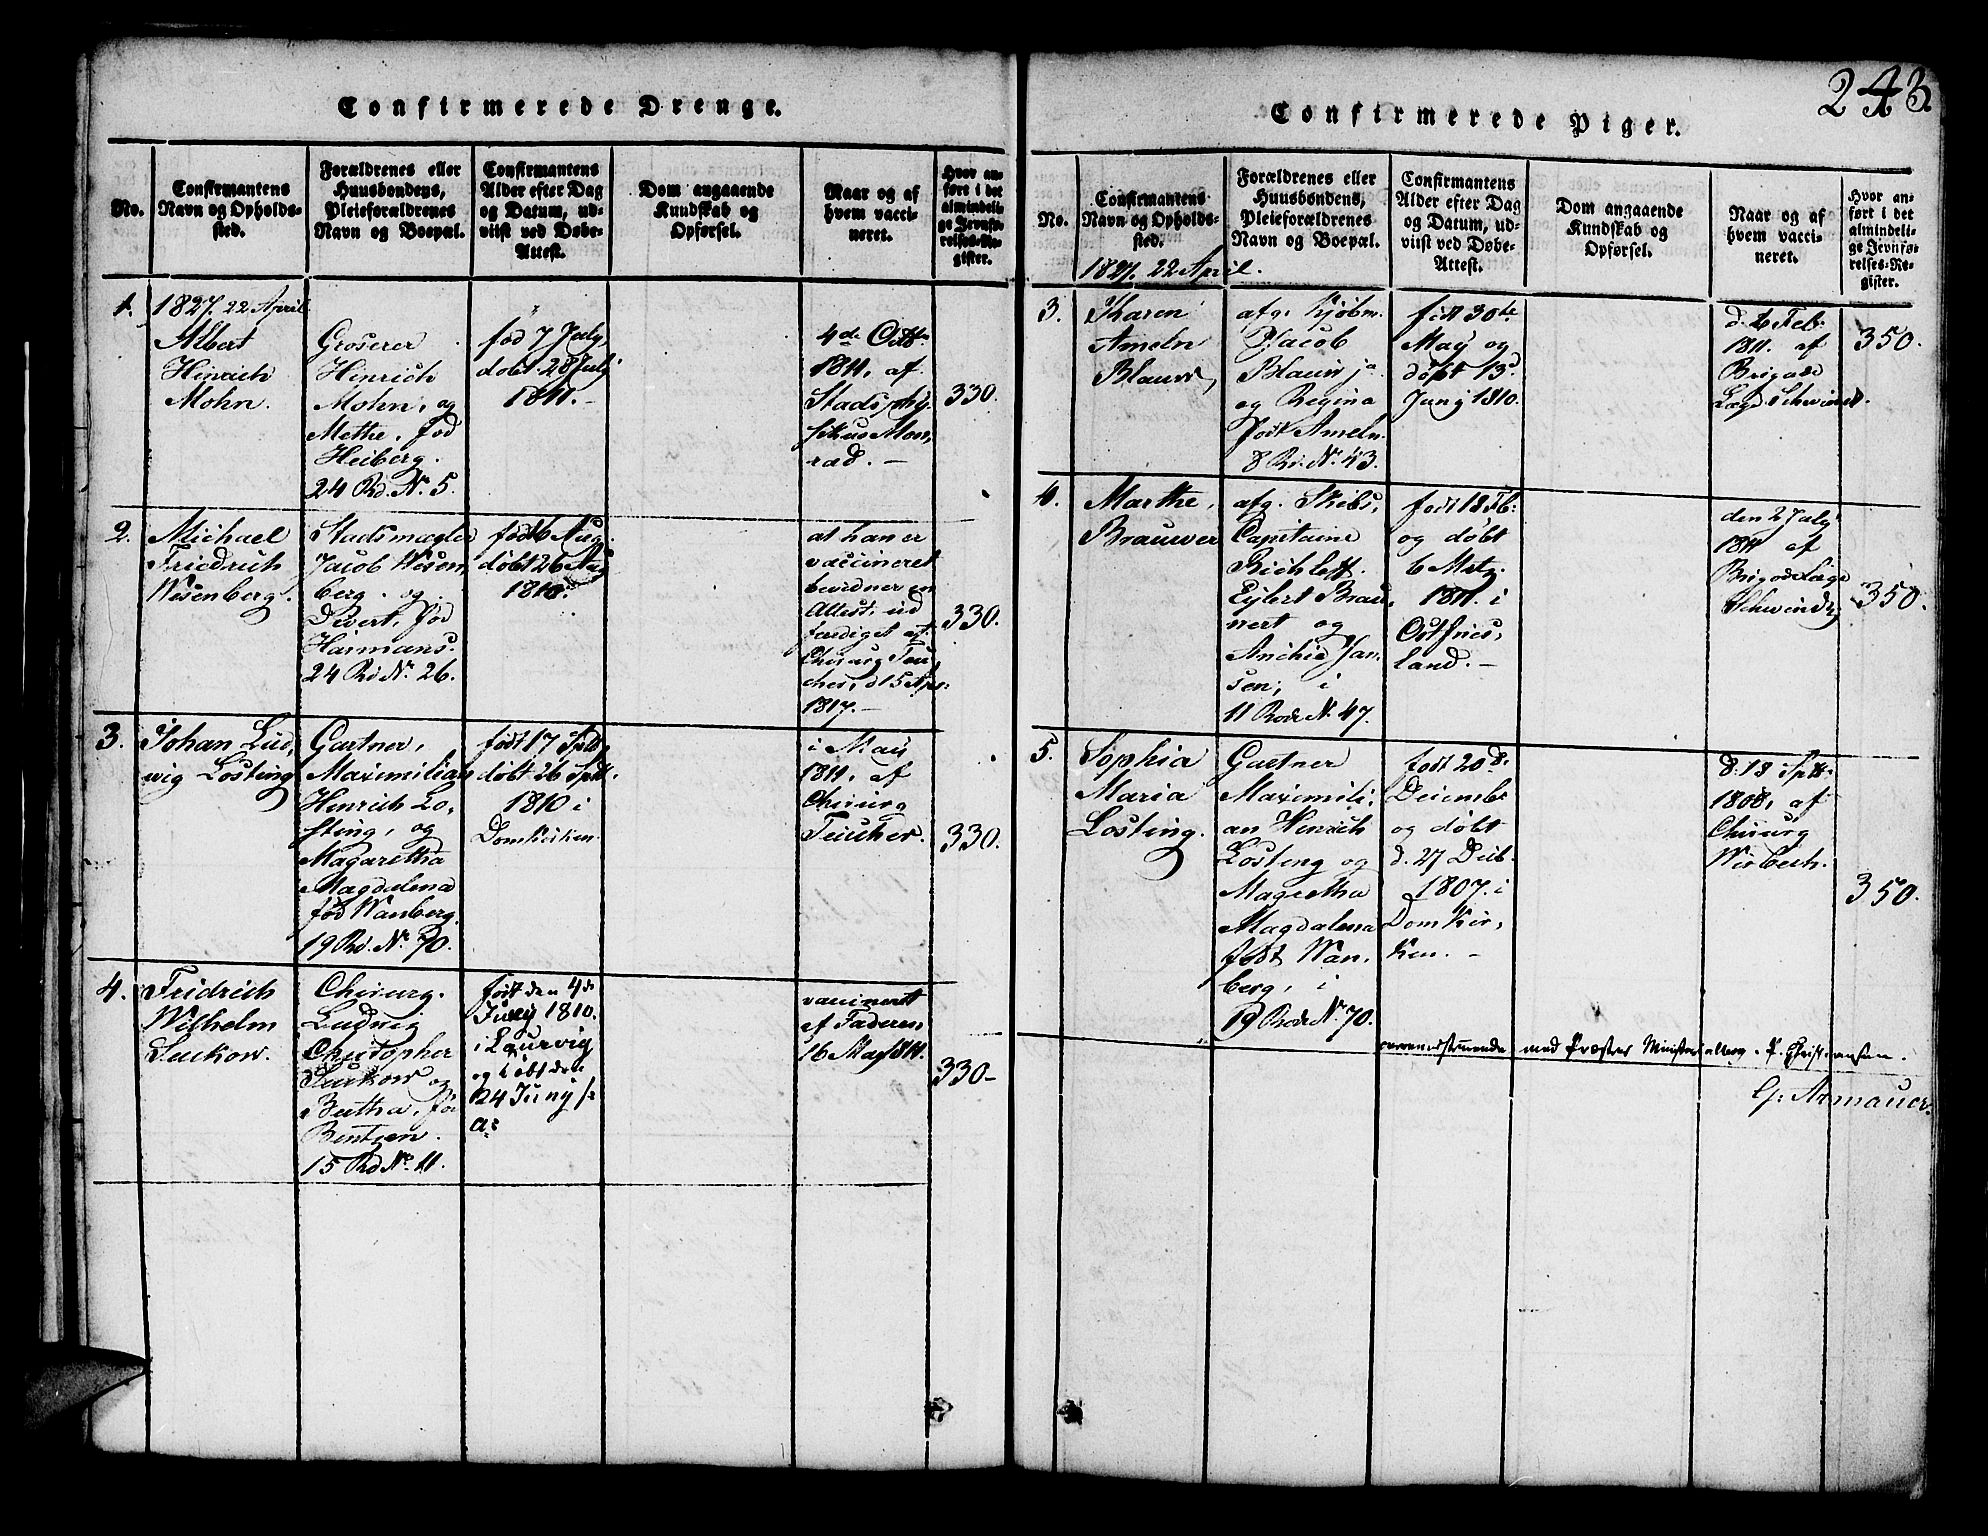 Confirmerede Drenge.
No.
Confirmantens
Navn og Opholds-
sted.
Forældrenes eller
Huusbondens,
Pleieforældrenes
Navn og Boepæl.
Confirmantens
Alder efter Dag
og Datum, ud-
viist ved Døbe-
Attest.
Dom angaaende
Kundskab og
Opførsel.
Naar og af
hvem vacci-
neret.
Hvor an-
ført i det
almindeli-
ge Jevnfø-
relses-Re-
gister.
1.
1827. 22 April
Albert
Hinrich
Mohn.
Groserer
Hinrich
Mohn, og
Methe, fød
Heiberg.
24 Rd. N. 5.
fød 7 July,
døbt 28 July
1811.
4de Octb
1811, af
Stadsphy-
sikus Mon,
rad.
330.
2.
Michael
Friedrich
Wesenberg.
Stadsmægler
Jacob Wesen,
berg. og
Divert, fød
Harmans.
24 Rd N. 26.
født 6 Aug.
døbt 26 Aug
1810.
at han er
vaccineret
bevidner en
Attest, ud
færdiget af
Chirurg Teu
cher, d 15 Apr:
1817.
330.
3.
Johan Lud,
wig Losting
Gartner,
Maximilian
Henrich Lo,
sting, og
Magaretha
Magdalena
fød Wanberg.
19 Rd. N. 70.
født 17 Sptb,
døbt 26 Sptb.
1810 i
Domkirken.
i May
1811, af
Chirurg
Teucher.
330.
4.
Fridrich
Wilhelm
Suckow.
Chirurg.
Ludvig
Christopher
Suckow og
Bertha, fød
Bentzen.
15 Rd N. 11.
født den 4de
Juny 1810.
i Laurvig
og døbt den
24 Juny s:
a:
vaccineret
af Faderen,
16 May 1811.
330-
243.
Confirmerede Piger.
No.
Confirmantens
Navn og Opholds-
sted.
1827. 22 April.
Forældrenes eller
Huusbondens,
Pleieforældrenes
Navn og Boepæl.
Confirmantens
Alder efter Dag
og Datum, ud-
viist ved Døbe-
Attest.
Dom angaaende
Kundskab og
Opførsel.
Naar og af
hvem vacci-
neret.
Hvor an-
ført i det
almindeli-
ge Jevnfø-
relses-Re-
gister.
3.
Tharen
Ameln
Blauw,
afg. Kjøbm.
Jacob
Blauw j
og Regina
født Ameln.
8 Rd. N. 43.
født 30te
May og
døbt 13d.
Juny 1810.
d. 6 Feb:
1811. af
Brigade
Læge Schwindt.
350.
4.
Marthe,
Brauwer
afg. Skibs,
Capitaine
Eylert Brau,
wert og
Anchie Jan,
sen, i
11 Rode N. 47.
født 18 Fb:
og døbt
6 Mrtz.
1811. i
Ostfries,
land.
den 2 July
1811 af
Brigade Læge
Schwindt,
350.
5.
Sophia
Maria
Losting.
Gartner
Maximili,
an Hinrich
Losting og
Magretha
Magdalena
født Wan,
berg, i
19 Rode N. 70.
født 20 d.
Decembr
og døbt
d. 27 Decb.
1807. i
Domkir,
ken.
d. 18 Sptb.
1808, af
Chirurg
350.
overeenstemmende med Præstens Ministerialbog. P. Christiansen.
G: Armauer.